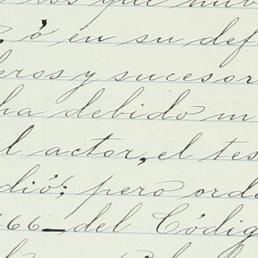 os que hub
, ó en su def
eros y sucesor
ha debido in
l actor, el tes
dió; pero orde
66_ del Códig